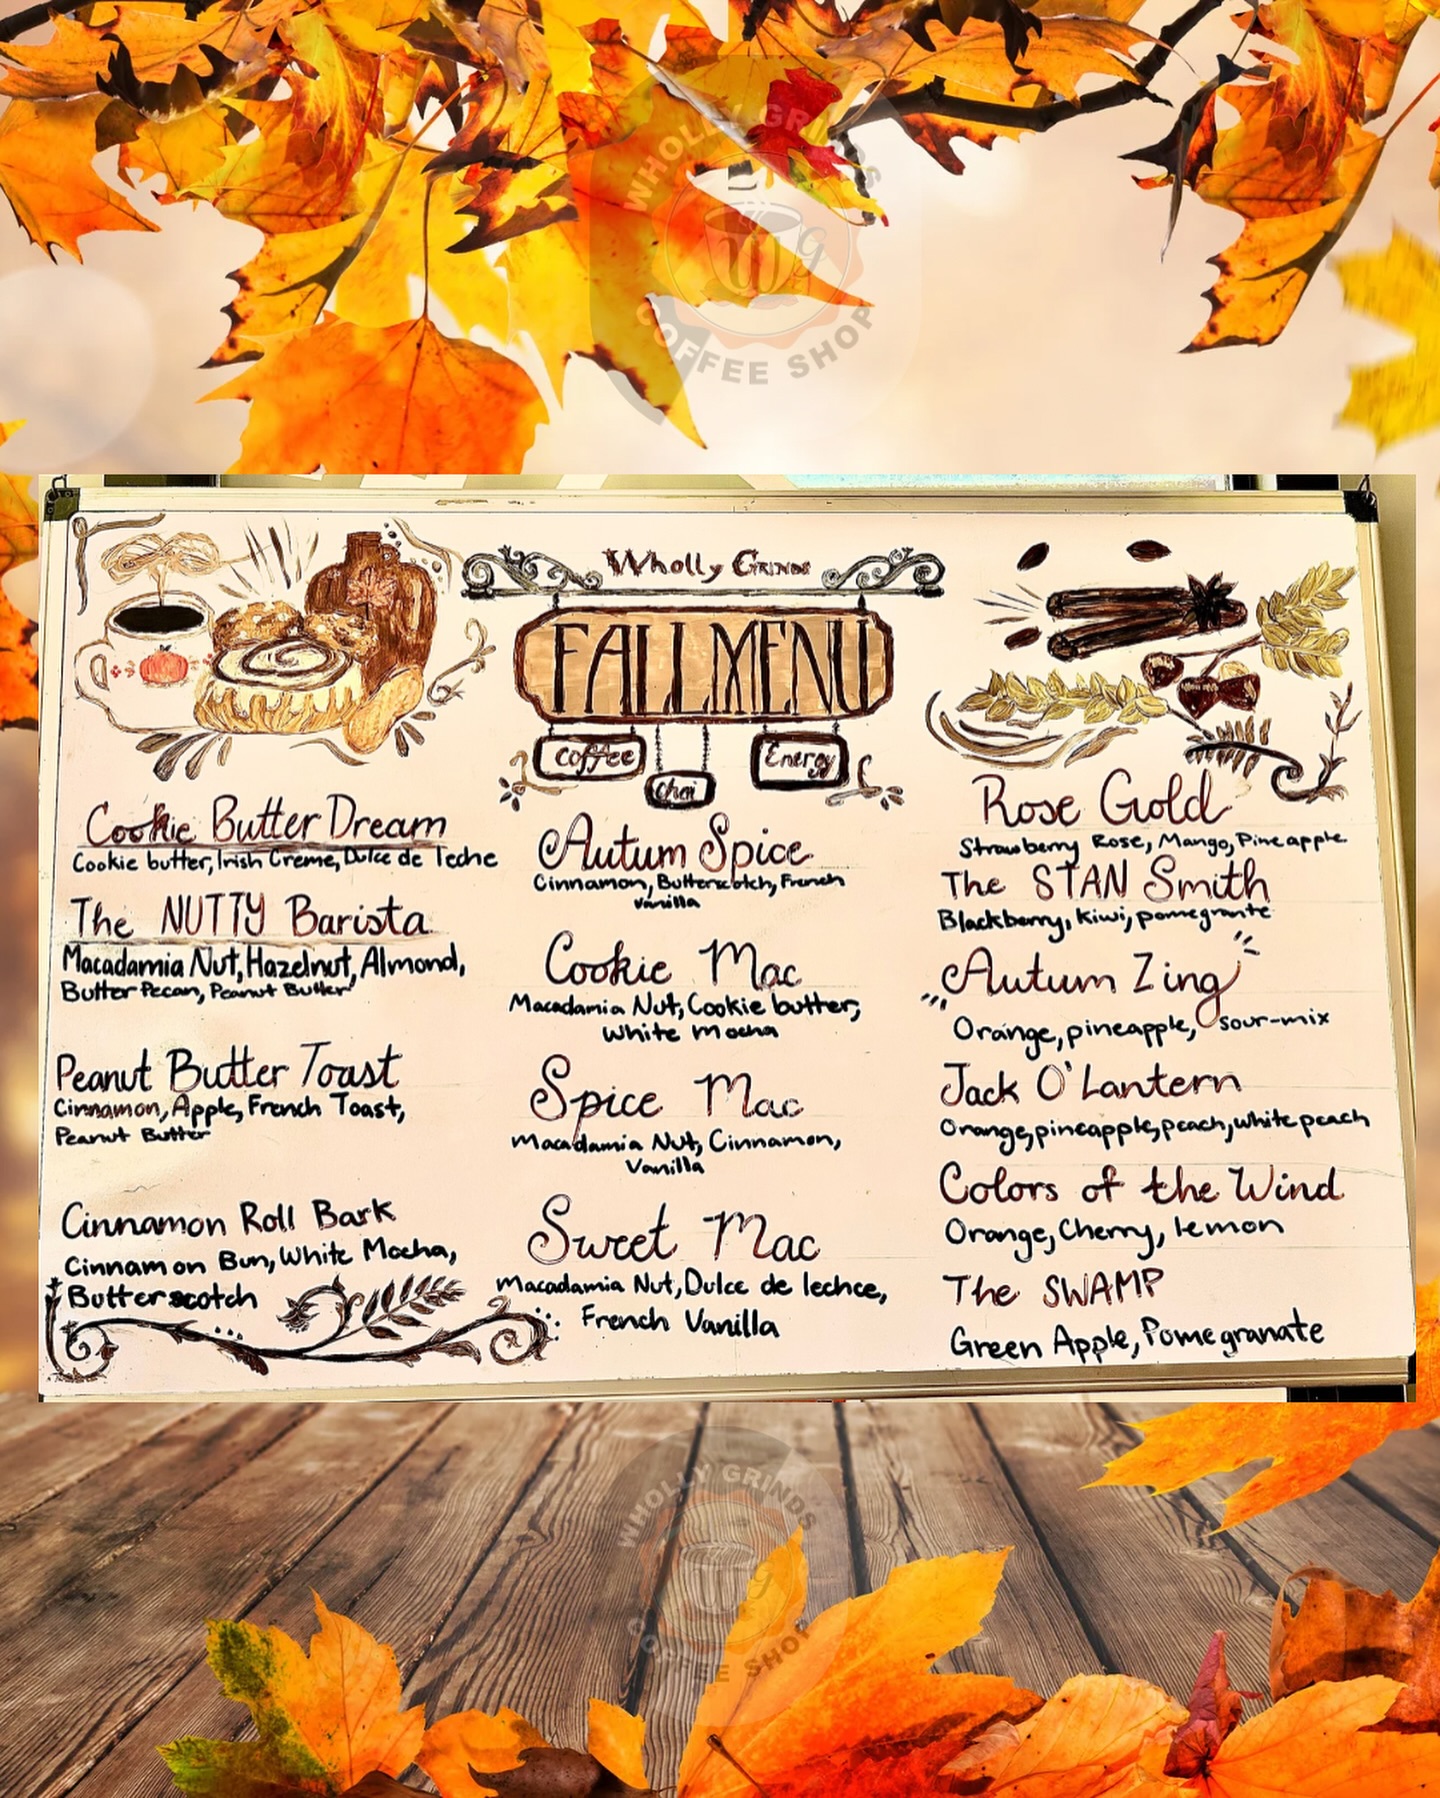 WHOLLY GRINDS
Wg
COFFEE SHOP
Wholly Grinds
FALL MENU
Coffee
Chai
Energy
Cookie Butter Dream
Cookie butter, Irish Creme, Dulce de leche
The NUTTY Barista
Macadamia Nut, Hazelnut, Almond,
Butter Pecan, Peanut Butter
Peanut Butter Toast
Cinnamon, Apple, French Toast,
Peanut Butter
Cinnamon Roll Bark
Cinnamon Bun, White Mocha,
Butterscotch
Autum Spice
Cinnamon, Butterscotch, French
Vanilla
Cookie Mac
Macadamia Nut, Cookie butter,
White Mocha
Spice Mac
Macadamia Nut, Cinnamon,
Vanilla
Sweet Mac
Macadamia Nut, Dulce de lechce,
French Vanilla
Rose Gold
Strawberry Rose, Mango, Pineapple
The STAN Smith
Blackberry, Kiwi, pomegrante
Autum Zing
Orange, pineapple, sour-mix
Jack O'Lantern
Orange, pineapple, peach, white peach
Colors of the Wind
Orange, Cherry, lemon
The SWAMP
Green Apple, Pomegranate
WHOLLY GRINDS
Wg
COFFEE SHOP